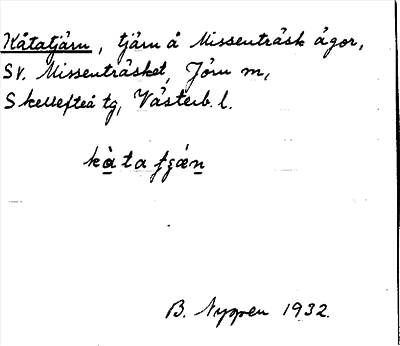 Kåtatjärn, tjärn å Missenträsk ägor,
SV. Missenträsket, Jörn sn,
Skellefteå tg, Västerb. l.
kàtafjän
B. Nygren 1932.